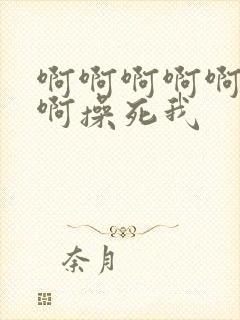 啊啊啊啊啊
啊操死我
奈月